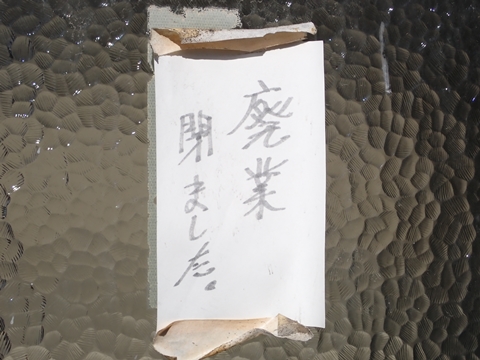 廃業
閉ました。